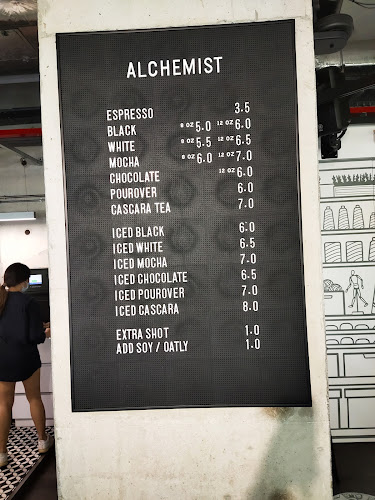 ALCHEMIST
ESPRESSO 3.5
BLACK 8 OZ 5.0 12 OZ 6.0
WHITE 8 OZ 5.5 12 OZ 6.5
MOCHA 8 OZ 6.0 12 OZ 7.0
CHOCOLATE 12 OZ 6.0
POUROVER 6.0
CASCARA TEA 7.0
ICED BLACK 6.0
ICED WHITE 6.5
ICED MOCHA 7.0
ICED CHOCOLATE 6.5
ICED POUROVER 7.0
ICED CASCARA 8.0
EXTRA SHOT 1.0
ADD SOY / OATLY 1.0